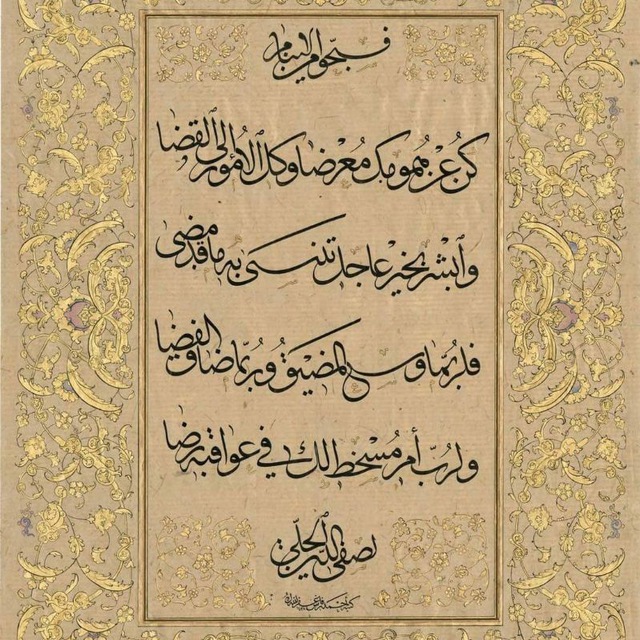 كن عن همومك معرضا وكل الأمور إلى القضا
وأبشر بخير عاجل تنسى به ما قد مضى
فلربما وسع المضيق وربما ضاق الفضا
ولرب أمر مسخط لك في عواقبه رضا
لصفي الدين الحلي